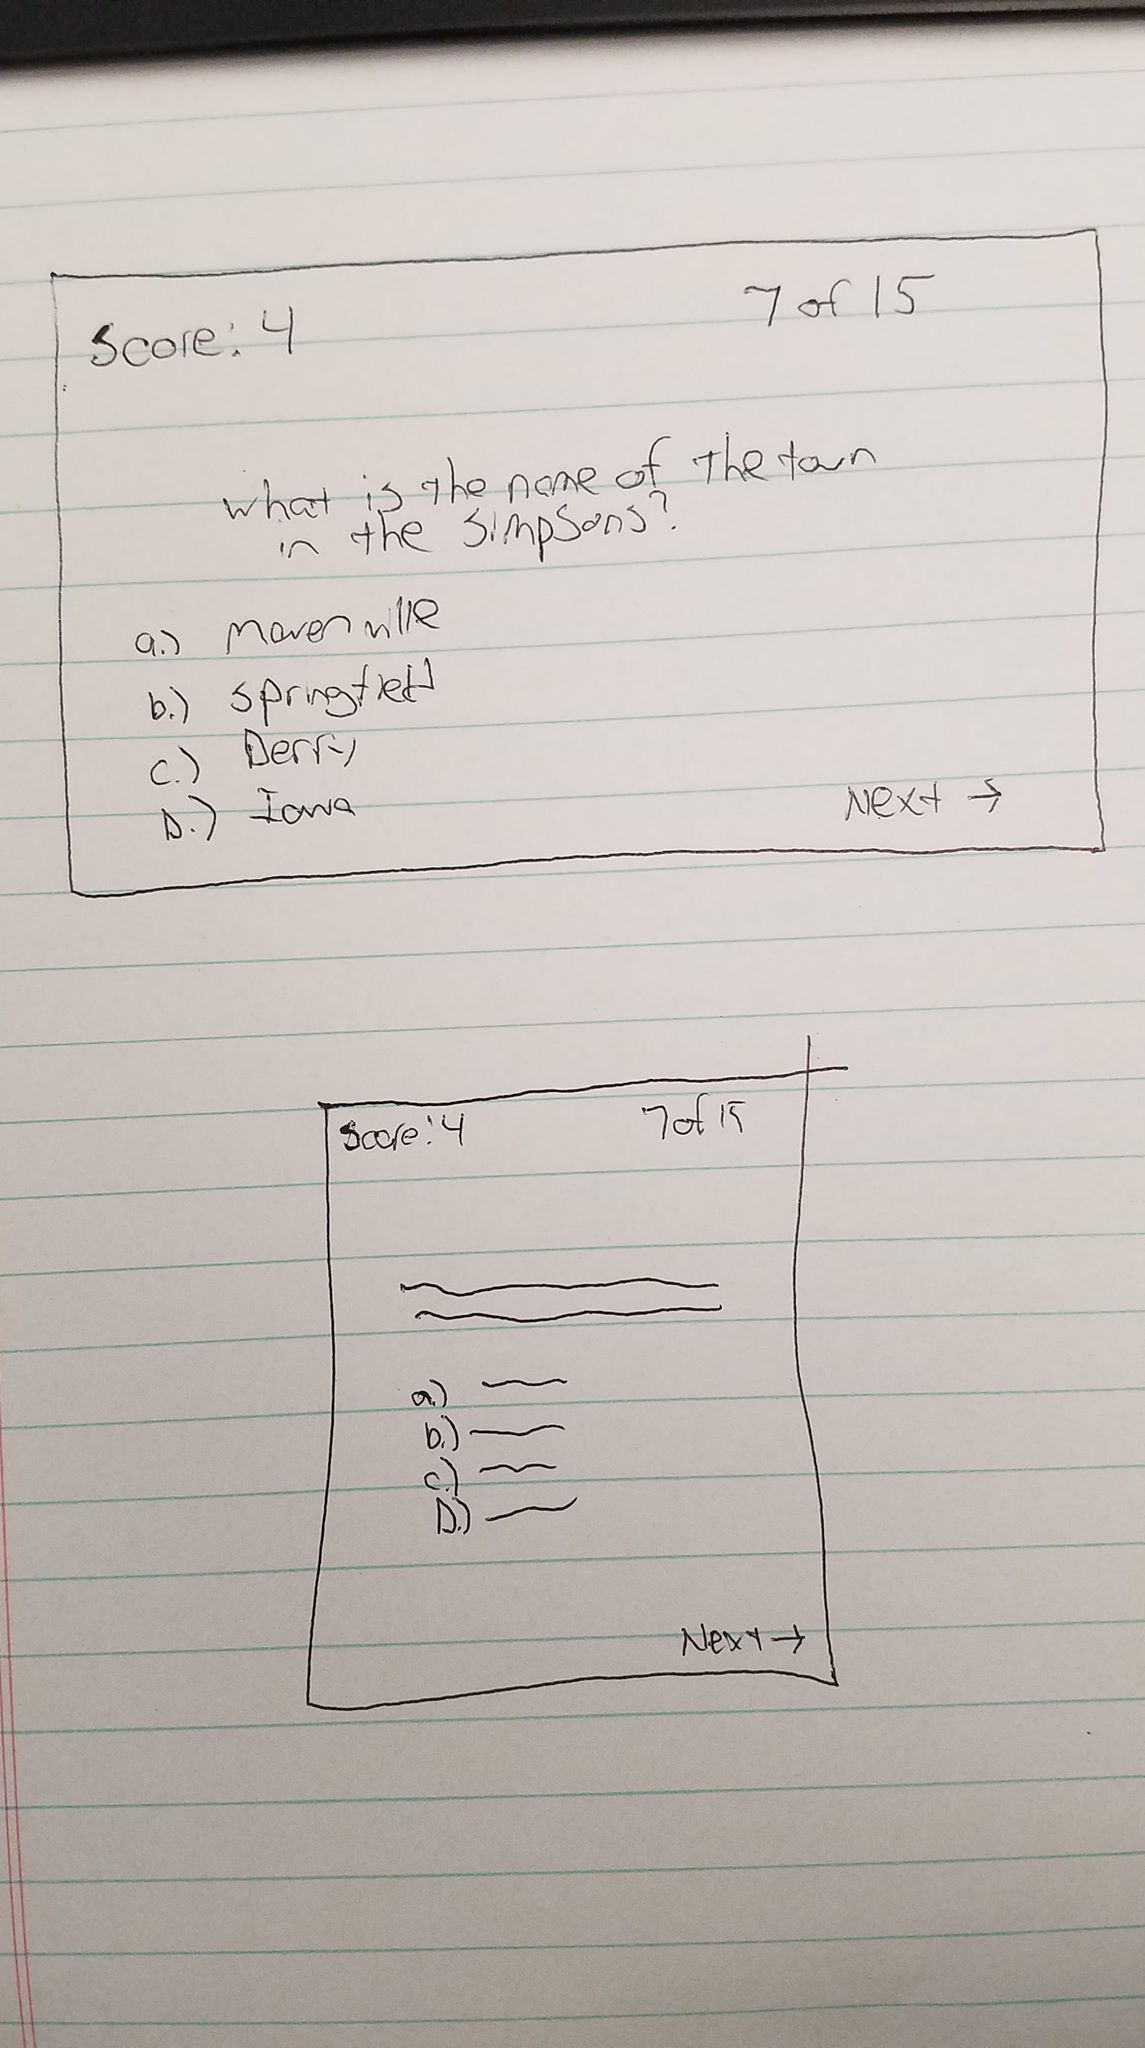 Score: 4
7 of 15
what is the name of The town
in the Simpsons?
a.) Mavenville
b.) Springfield
C.) Derry
D.) Iowa
Next →
Score: 4
7 of 15
a.)
b.)
c.)
D.)
Next →